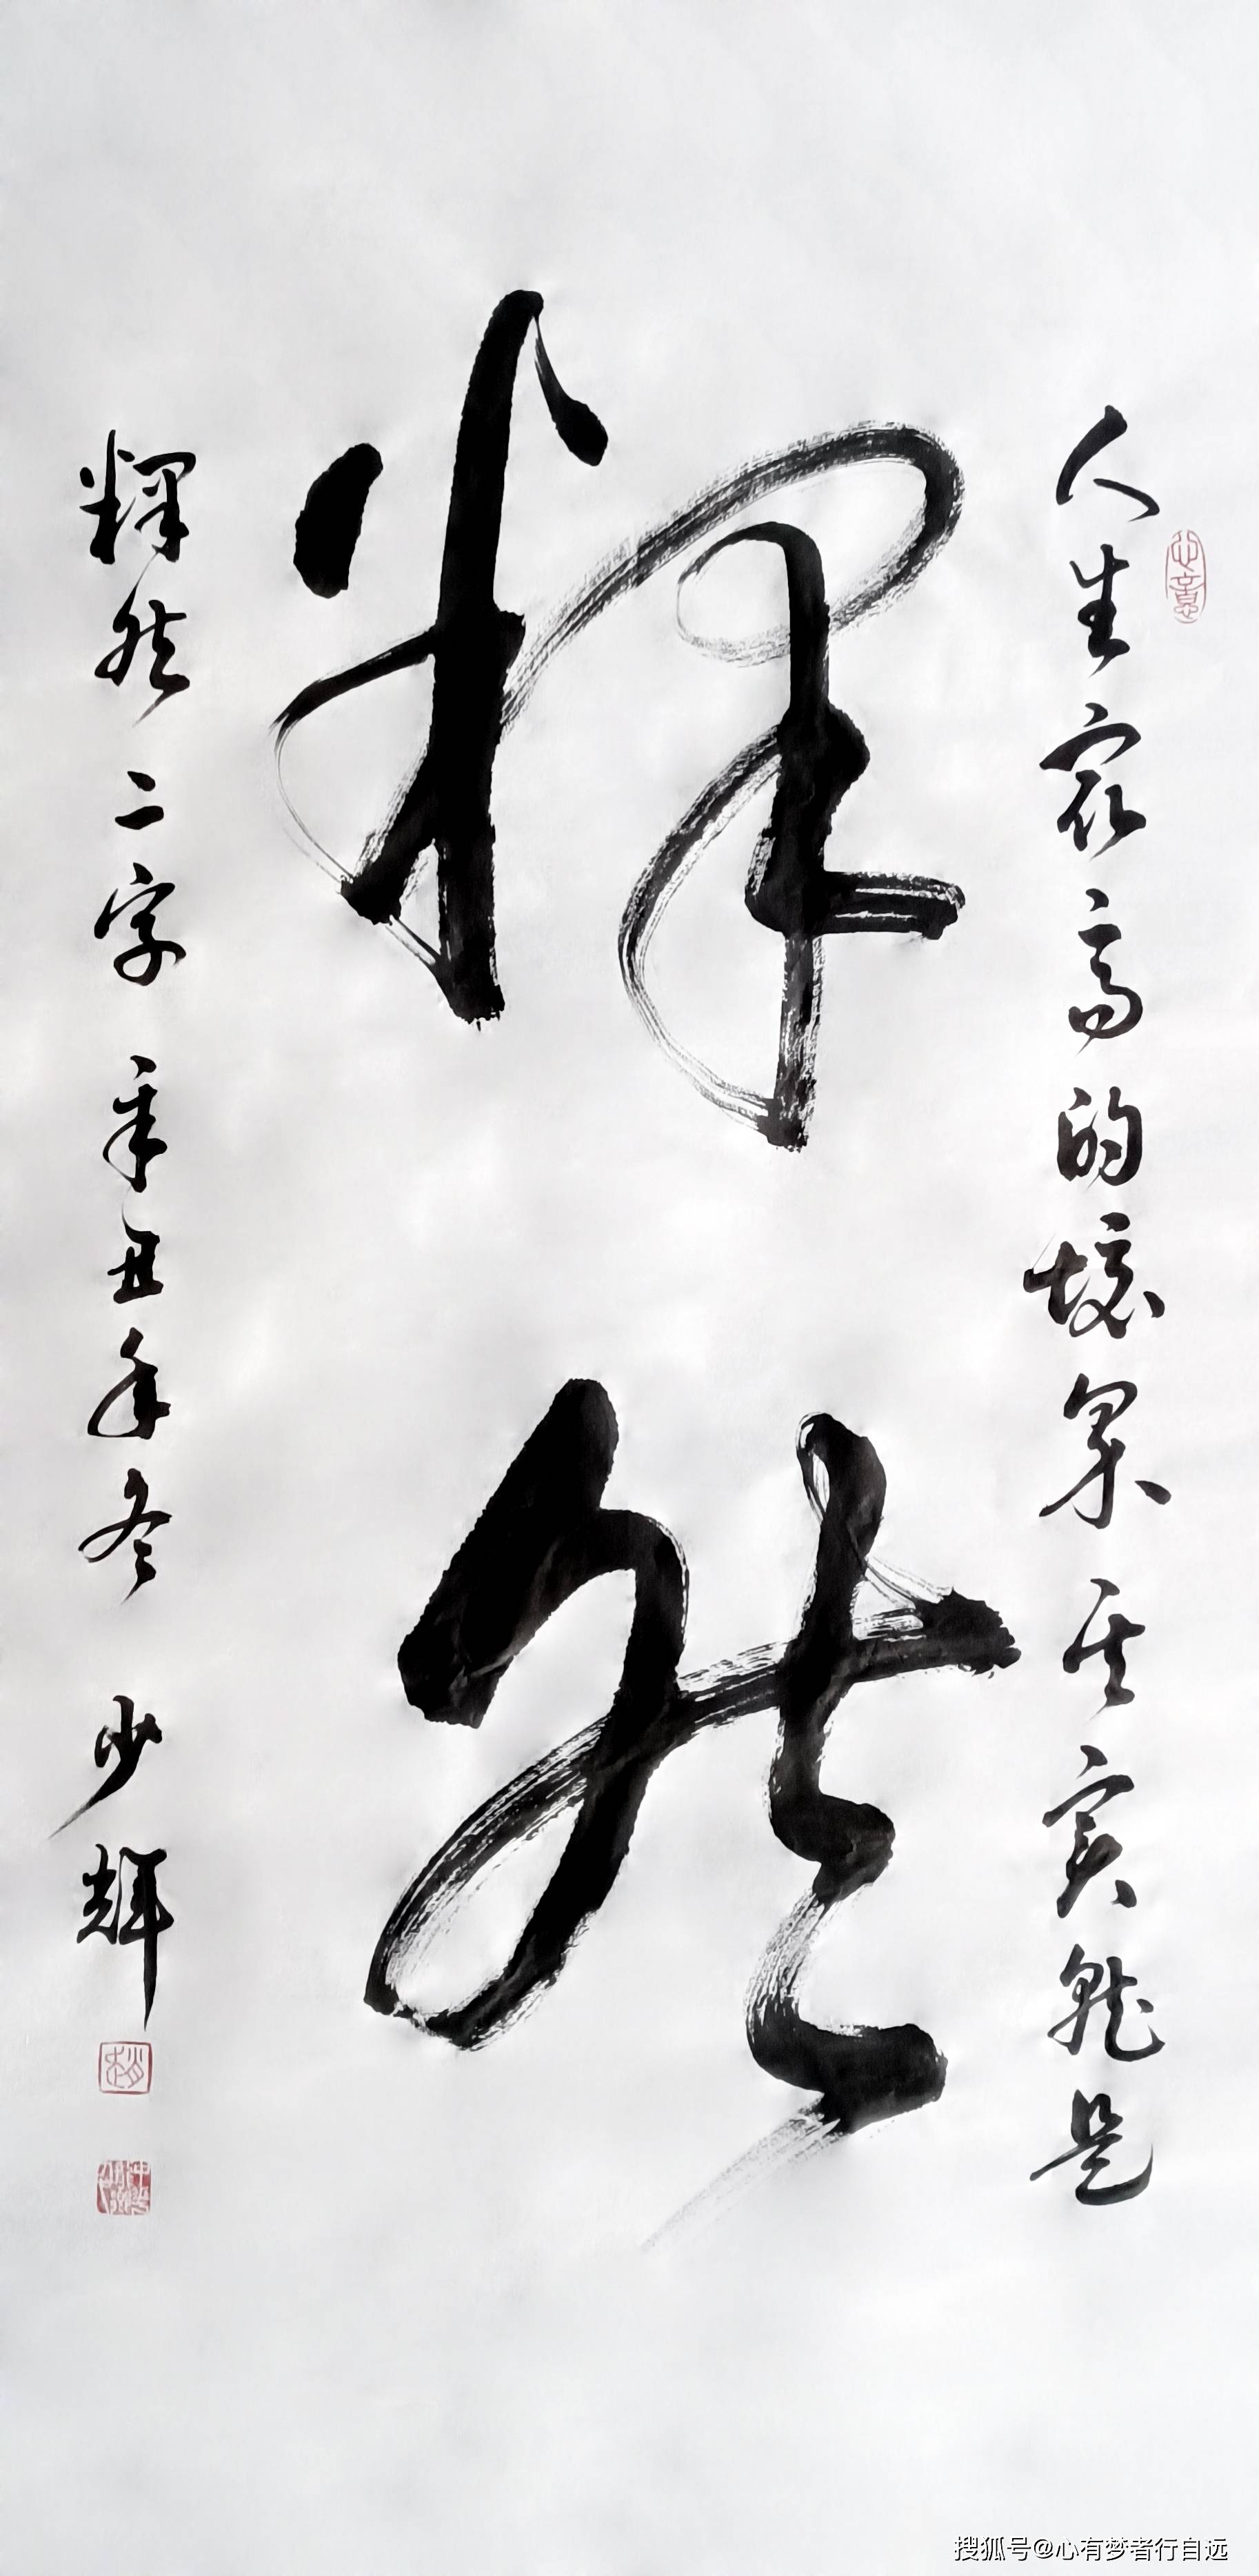 人生最高的境界其实就是
释然
释然二字 辛丑年冬 少辉
心意
搜狐号@心有梦者行自远